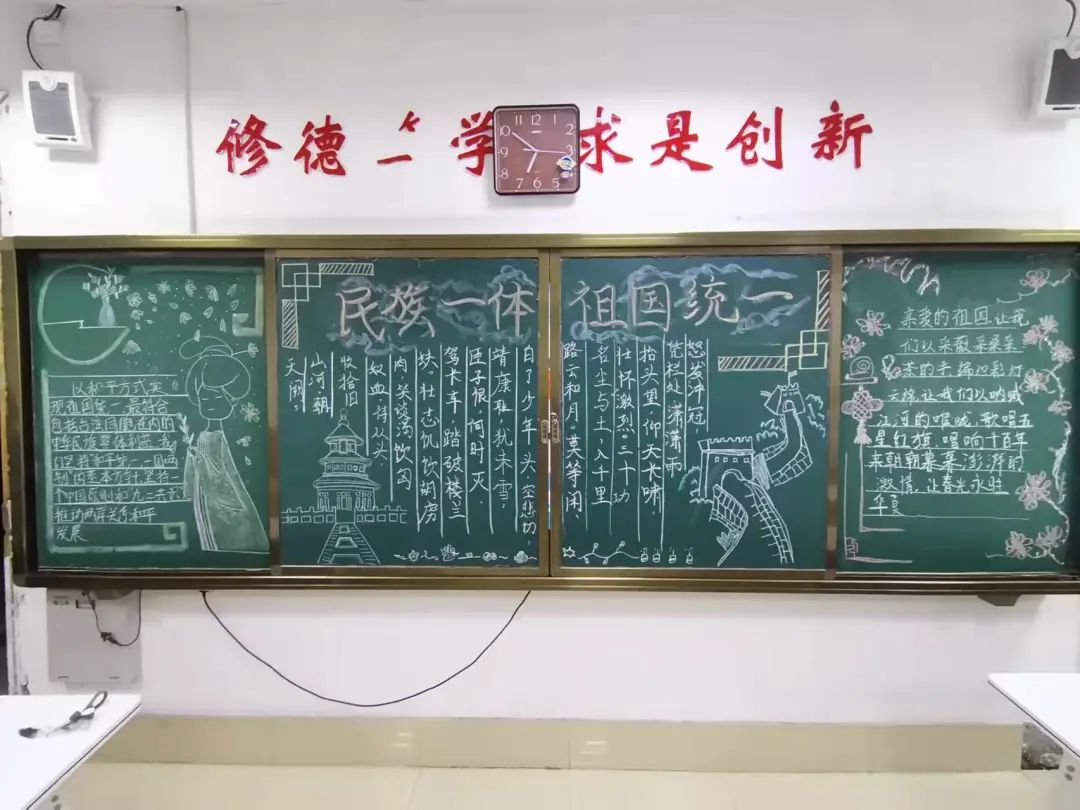 修德 学 求是创新
12 1 2 3 5 6 7 8 9 10 11
民族一体 祖国统一
以和平方式实
现祖国统一最符合
包括台湾同胞在内的
中华民族整体利益.我
们坚持和平统一.一国两
制的基本方针,坚持一
个中国原则和九二共识
推动两岸关系和平
发展
怒发冲冠
凭栏处.潇潇雨
抬头望,仰天长啸.
壮怀激烈.三十功
名尘与土.八千里
路云和月.莫等闲、
白了少年头,空悲切.
靖康耻,犹未雪.
臣子恨,何时灭
驾长车 踏破楼兰
缺.壮志饥饮胡虏
肉.笑谈渴饮匈
奴血.待从头、
收拾旧
山河朝
天阙.
亲爱的祖国让我
们以采薇采桑采
茶的手
云锦让我们以呐喊
江河的喉咙,歌唱五
星红旗.唱响十百年
来朝朝暮暮澎湃的
激情.让春光永驻
华夏